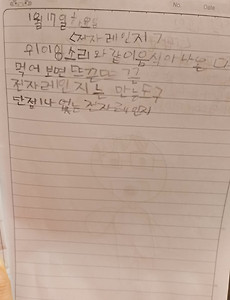 1월 17일
<전자레인지>
위이잉소리와 같이 음식이 나온다
먹어보면 뜨끈뜨끈
전자레인지는 만능도구
단점 하나 없는 전자레인지